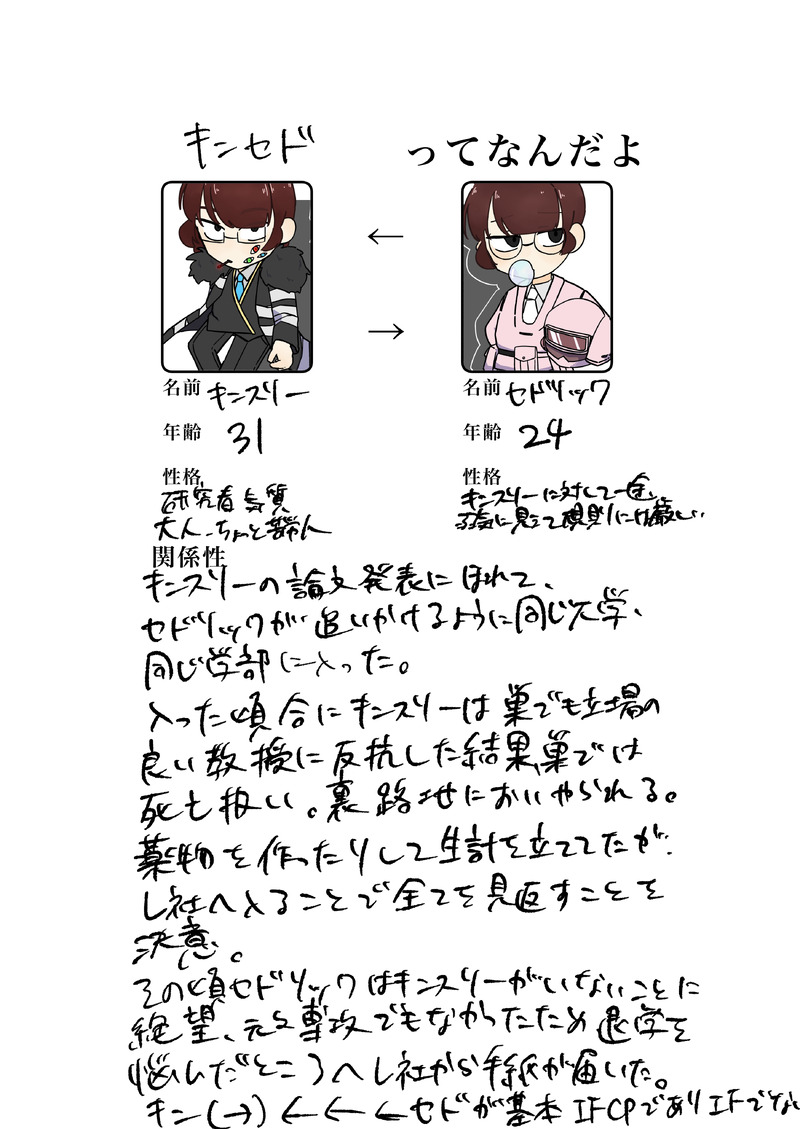 キンセド ってなんだよ
←
→
名前 キンスリー
名前 セドリック
年齢 31
年齢 24
性格
研究者気質
大人、ちょっと苦労人
性格
キンスリーに対して一途、
弱気に見えて規則には厳しい
関係性
キンスリーの論文発表にほれて、
セドリックが追いかけるように同じ大学、
同じ学部に入った。
入った頃合にキンスリーは巣でも立場の
良い教授に反抗した結果、巣では
死亡扱い。裏路地においやられる。
薬物を作ったりして生計を立ててたが、
L社へ入ることで全てを見返すことを
決意。
その頃セドリックはキンスリーがいないことに
絶望、元々専攻でもなかったため退学を
悩んだところへL社から手紙が届いた。
キン(→)←←←セドが基本 IFCPでありIFでない